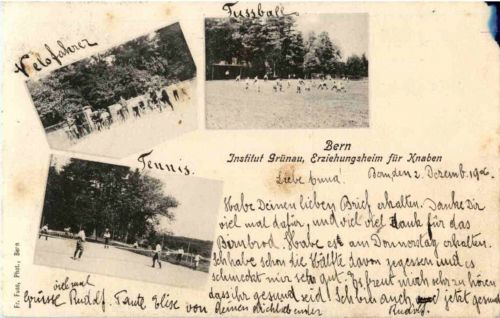 Fussball
Velofahrer
Tennis.
Bern
Institut Grünau, Erziehungsheim für Knaben
Liebe Anna! Bern, den 2. Dezemb. 190
Habe Deinen lieben Brief erhalten. Danke Dir
viel mal dafür, und viel viel Dank für das
Birnbrod. Habe es am Donnerstag erhalten.
Ich habe schon die Hälfte davon gegessen und es
schmeckt mir sehr gut. Es freut mich sehr zu hören
dass ihr gesund seid! Schreibe auch jetzt
Rudolf.
viel mal
Grüsse Rudolf. Tante Elise von
Deinen Dich liebender
Fr. Fuss, Phot., Bern